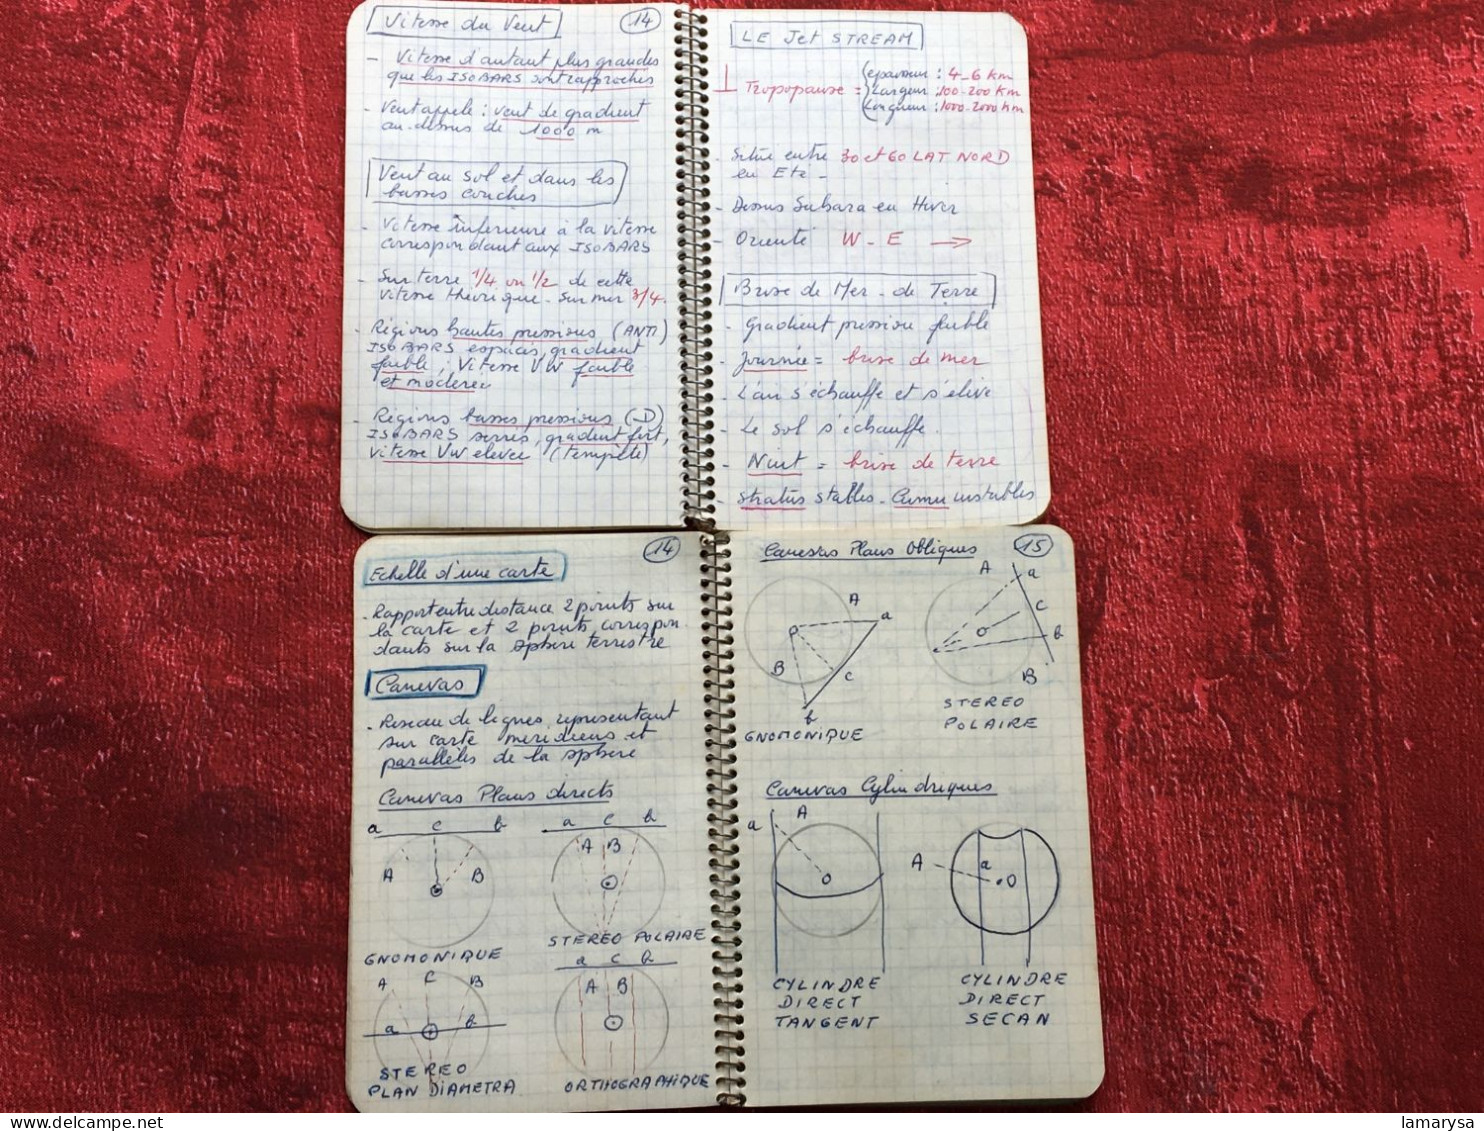 Vitesse du Vent
14
- Vitesse d'autant plus grandes
que les ISOBARS sont rapprochés
- Vent appelé : vent de gradient
au-dessus de 1000 m
Vent au sol et dans les
basses couches
- Vitesse inférieure à la vitesse
correspondant aux ISOBARS
- Sur terre 1/4 ou 1/2 de cette
vitesse théorique - Sur mer 3/4.
- Régions hautes pressions (ANTI)
ISOBARS espacés, gradient
faible, Vitesse VW faible
et modérée
- Régions basses pressions (D)
ISOBARS serrés, gradient fort,
vitesse VW élevée (tempête)
LE Jet STREAM
⊥ Tropopause = epaisseur : 4-6 Km
Largeur : 100-200 Km
Longueur : 1000-2000 Km
- Situé entre 30 et 60 LAT NORD
en Eté -
- Dessus Sahara en Hiver
- Orienté W - E →
Brise de Mer - de Terre
- Gradient pression faible
- Journée = brise de mer
- L'air s'échauffe et s'élève
- Le sol s'échauffe.
- Nuit = brise de terre
- Stratus stables - Cumu instables
Echelle d'une carte
14
- Rapport entre distance 2 points sur
la carte et 2 points correspon
dants sur la sphère terrestre
Canevas
- Réseau de lignes représentant
sur carte méridiens et
parallèles de la sphère
Canevas Plans directs
a c b
A B
GNOMONIQUE
a c b
A B
STEREO POLAIRE
A C B
a b
STEREO
PLAN DIAMETRA
a c b
A B
ORTHOGRAPHIQUE
Canevas Plans Obliques
15
A
a
O
B
c
b
GNOMONIQUE
A a
c
O
b
B
STEREO
POLAIRE
Canevas Cylindriques
a A
O
CYLINDRE
DIRECT
TANGENT
A
a
O
CYLINDRE
DIRECT
SECAN
www.delcampe.net
lamarysa